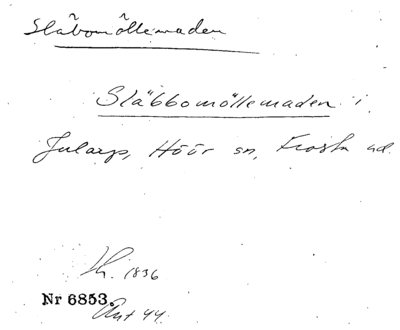 Släbomöllemaden
Släbbomöllemaden i
Jularp, Höör sn, Frosta hd.
1836
Nr 6853.
Ant 44.